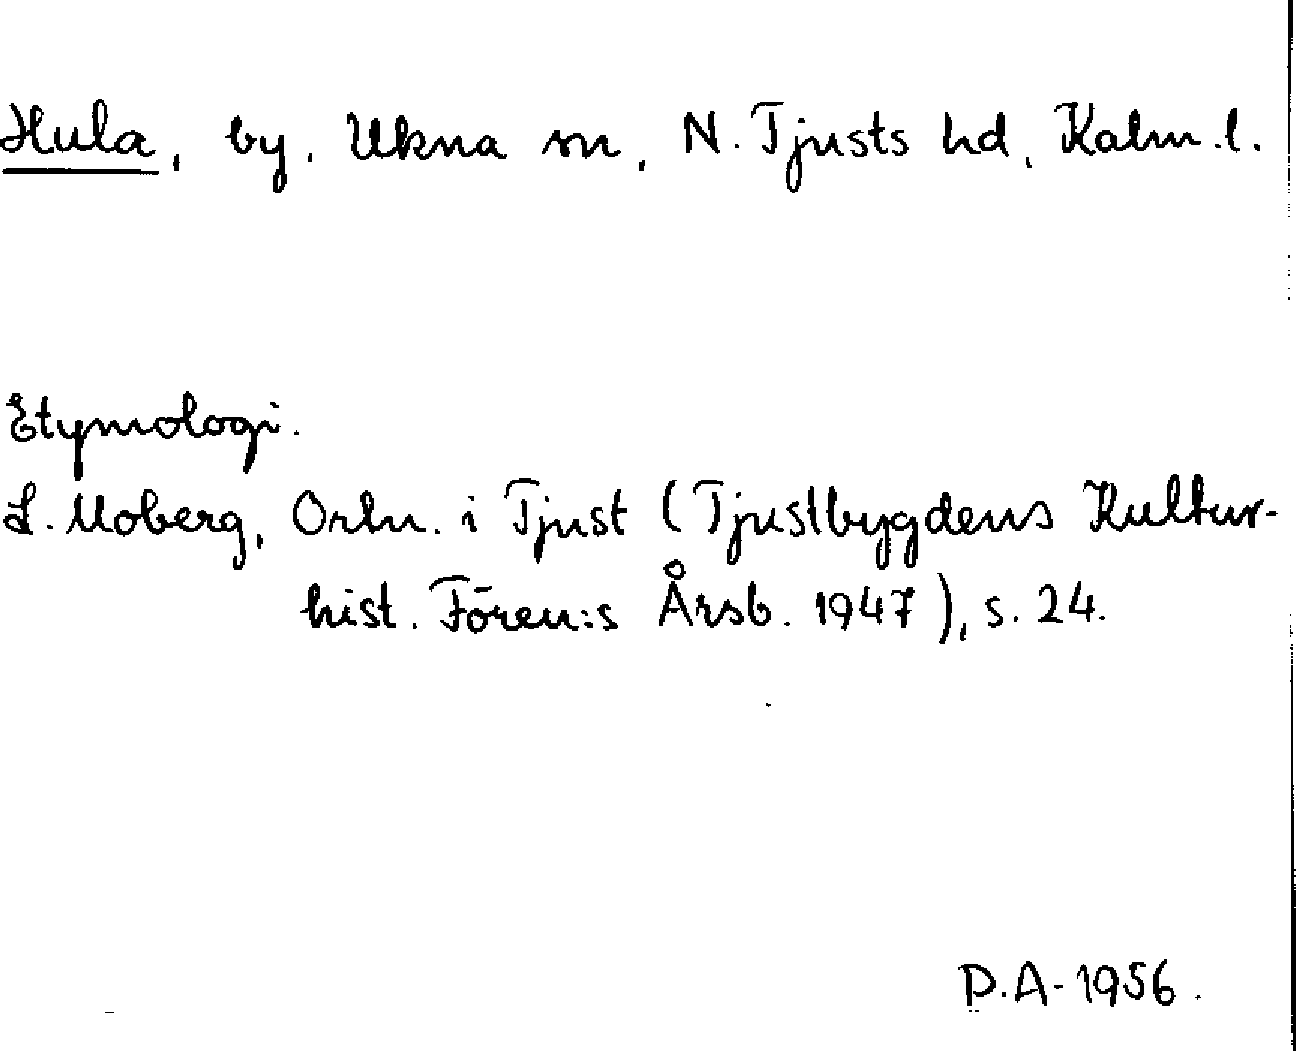 Hula, by, Ukna sn, N. Tjusts hd, Kalm. l.
Etymologi.
L. Moberg, Ortn. i Tjust (Tjustbygdens Kultur-
hist. Fören:s Årsb. 1947), s. 24.
P.A. 1956.